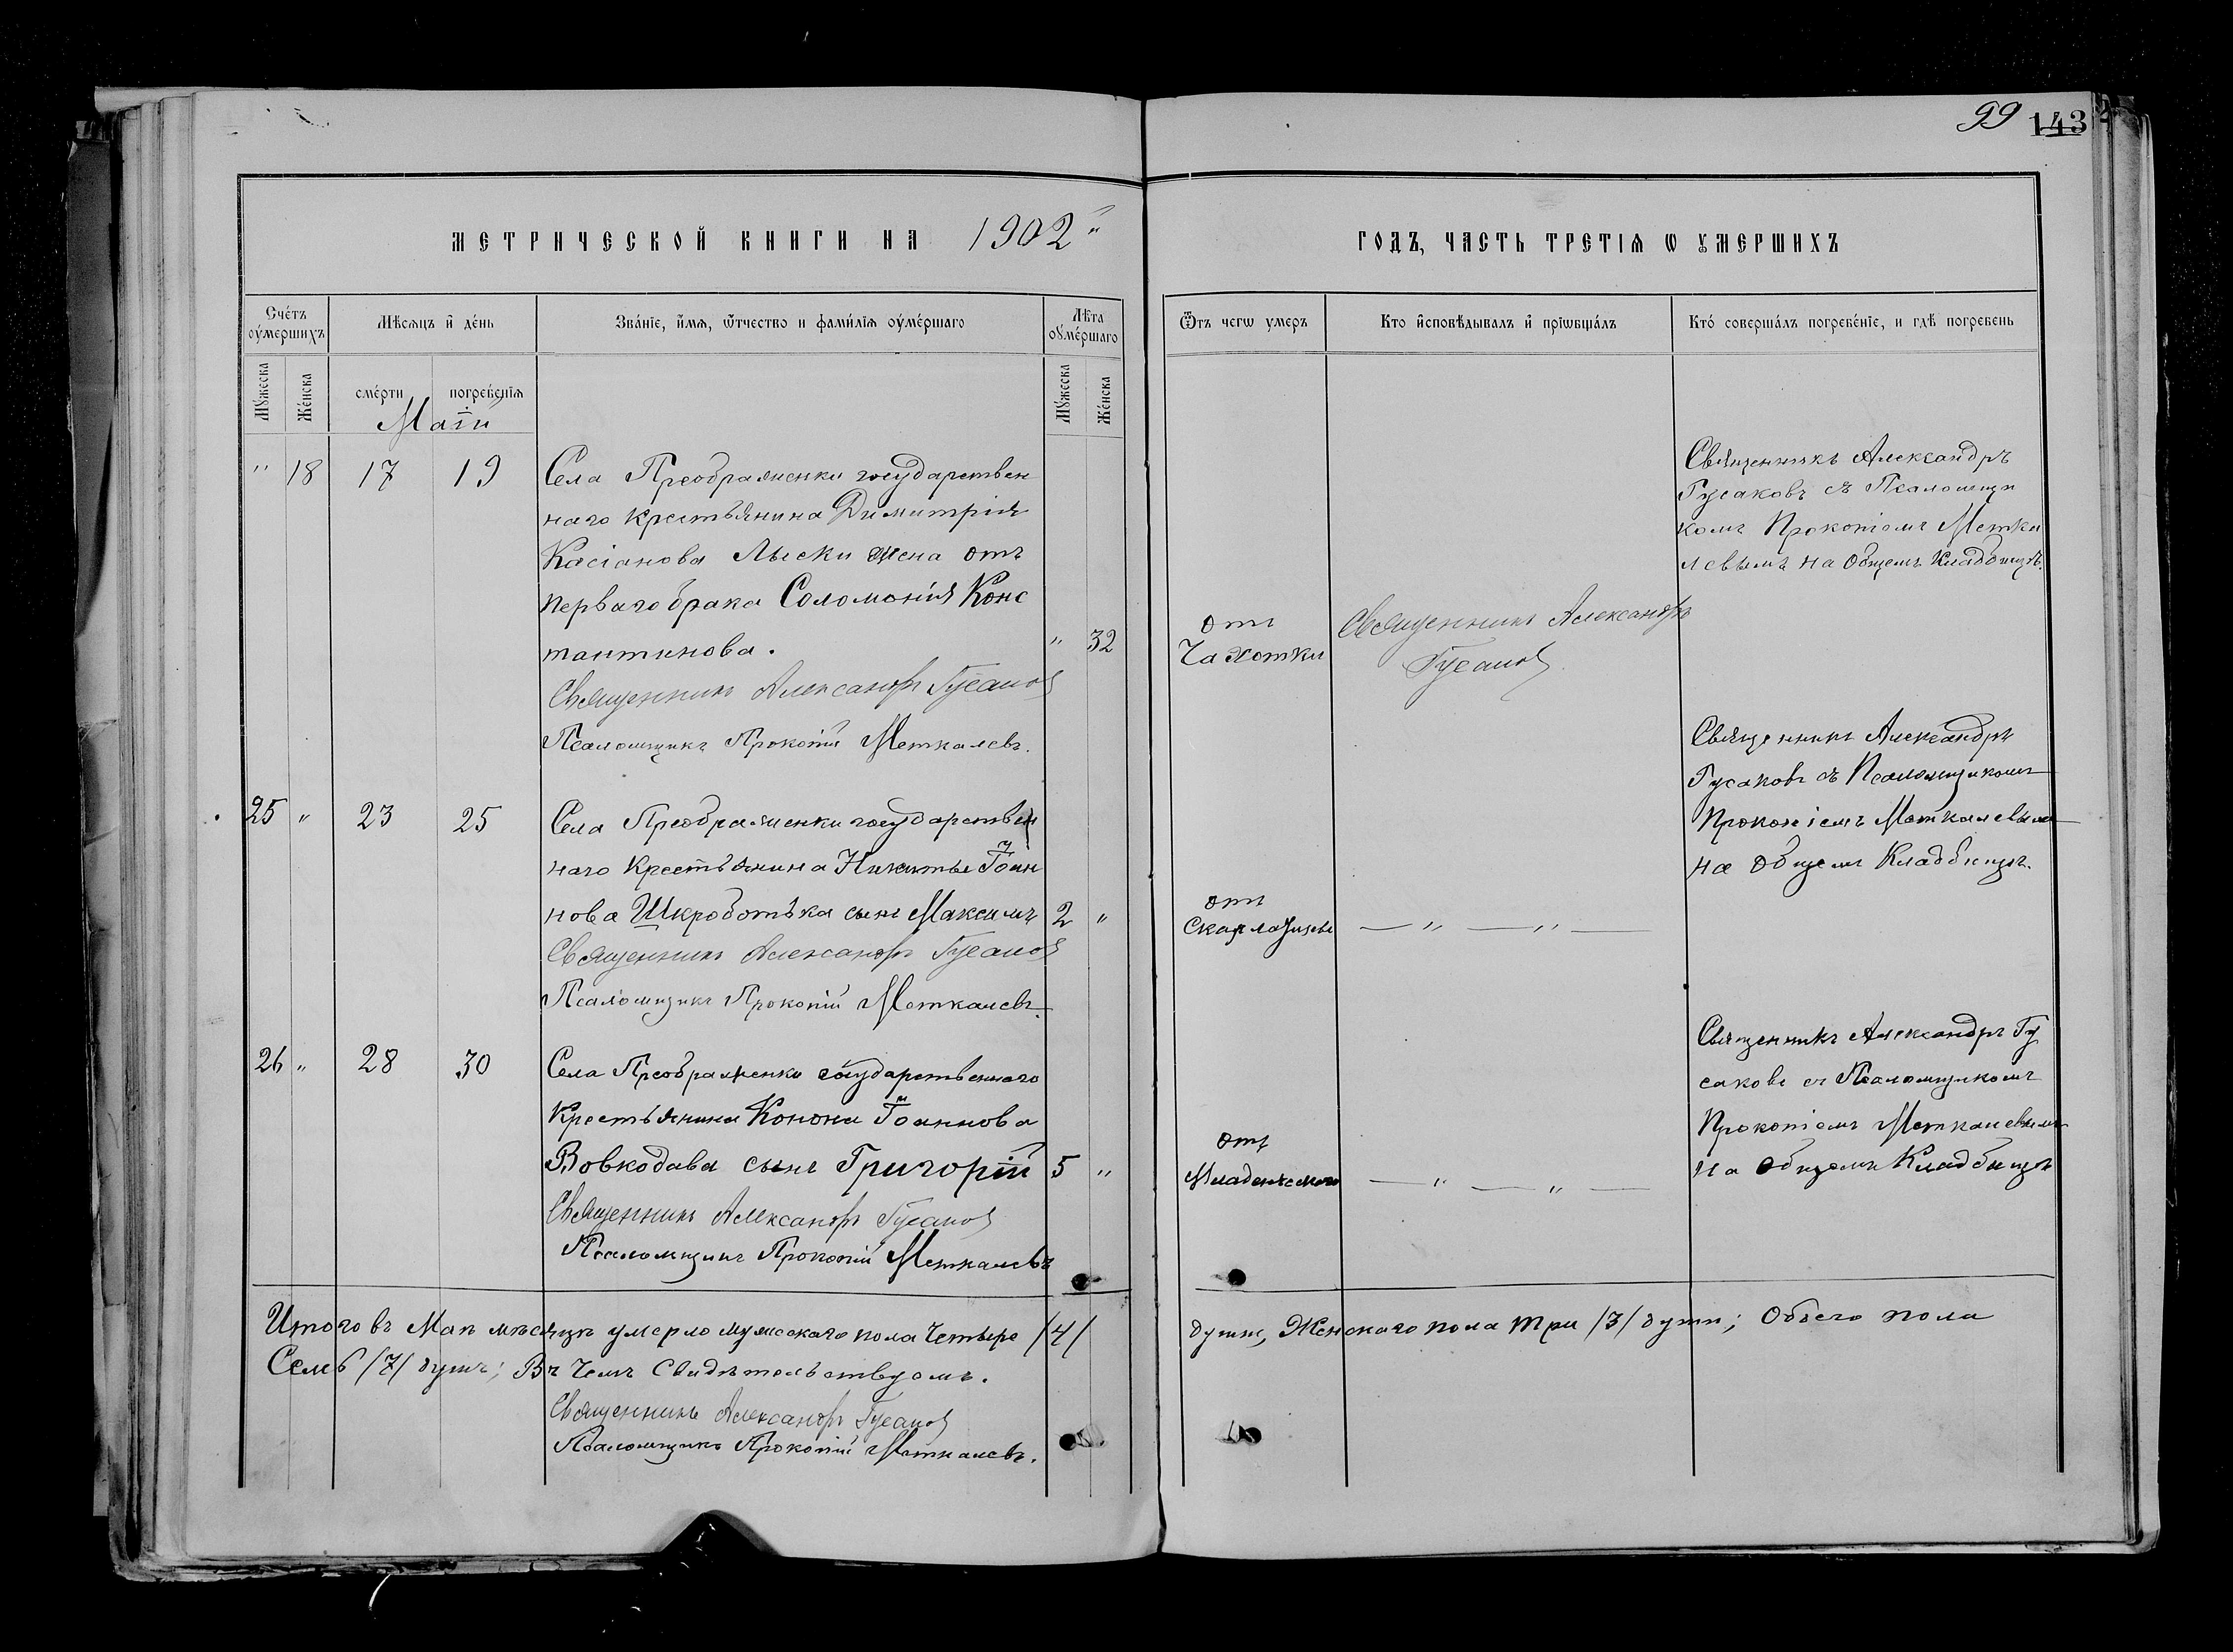 99 143
МЕТРИЧЕСКОЙ КНИГИ НА 1902
ГОДЪ, ЧАСТЬ ТРЕТІѦ Ѡ УМЕРШИХЪ
Сче́тъ оуме́ршихъ
Мѣсѧцъ и де́нь
Зва́нїе, и́мѧ, ѻ́тчество и фами́лїѧ оуме́ршаго
Лѣ́та оуме́ршаго
Ѿъ чегѡ умеръ
Кто и҆сповѣ́дывалъ и҆ прїѡбща́лъ
Кто́ соверша́лъ погребе́нїе, и гдѣ̀ погребенъ
Му́жеска
Же́нска
сме́рти
погребе́нїѧ
Му́жеска
Же́нска
Маій
" 18 17 19
Села Преображенки государствен
наго крестьянина Димитрія
Касіанова Лыски жена отъ
перваго брака Соломонія Конс
тантинова. " 32
Священникъ Александръ Гусаковъ
Псаломщикъ Прокопій Меткалевъ.
отъ
Чахотки
Священникъ Александръ
Гусаковъ
Священникъ Александръ
Гусаковъ съ Псаломщи
комъ Прокопіемъ Метка
левымъ на общемъ Кладбищѣ.
25 " 23 25
Села Преображенки государствен
наго Крестьянина Никиты Іоан
нова Шкроботька сынъ Максимъ 2 "
Священникъ Александръ Гусаковъ
Псаломщикъ Прокопій Меткалевъ.
отъ
Скарлатины
— " — " —
Священникъ Александръ
Гусаковъ съ Псаломщикомъ
Прокопіемъ Меткалевымъ
на общемъ Кладбищѣ.
26 " 28 30
Села Преображенки государственнаго
Крестьянина Конона Іоаннова
Вовкодава сынъ Григорій 5 "
Священникъ Александръ Гусаковъ
Псаломщикъ Прокопій Меткалевъ
отъ
Младенческаго
— " — " —
Священникъ Александръ Гу
саковъ съ Псаломщикомъ
Прокопіемъ Меткалевымъ
на общемъ Кладбищѣ
Итого въ Маѣ мѣсяцѣ умерло мужескаго пола Четыре /4/ души, Женскаго пола три /3/ души; Обоего пола
Семь /7/ душъ; Въ чемъ Свидѣтельствуемъ.
Священникъ Александръ Гусаковъ
Псаломщикъ Прокопій Меткалевъ.